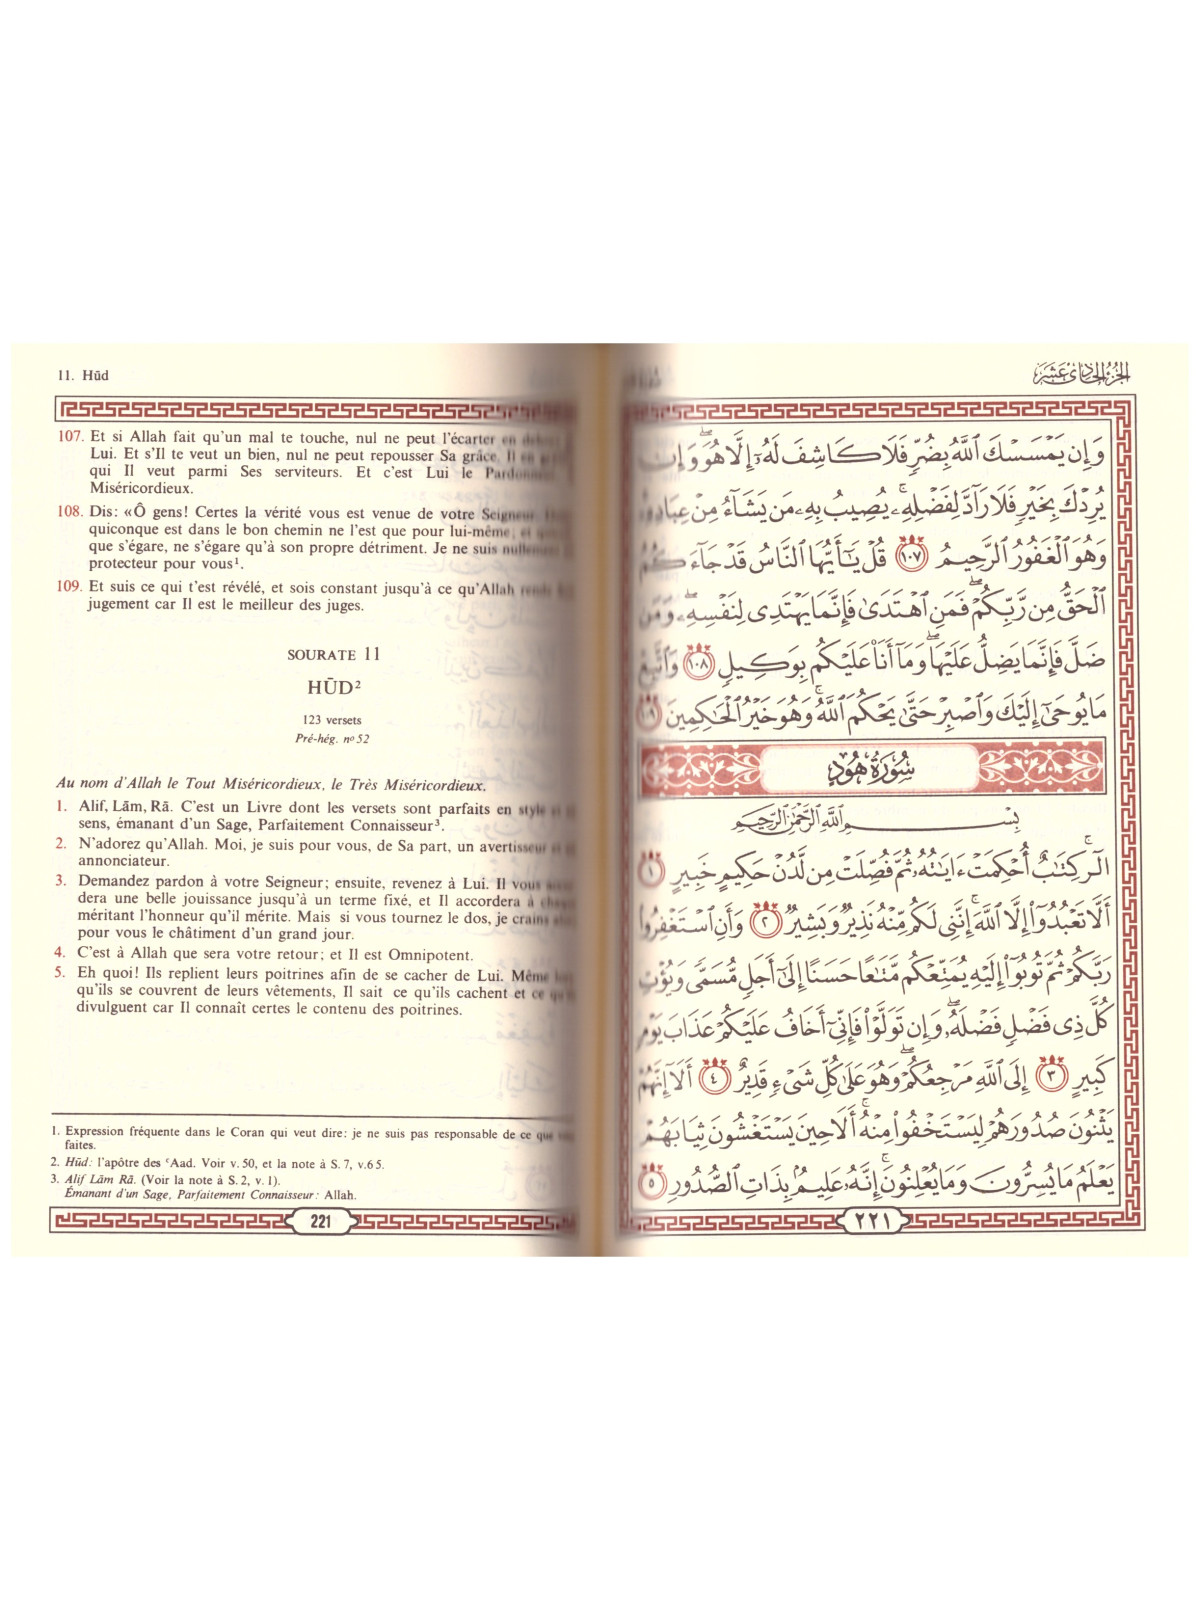 11. Hūd
107. Et si Allah fait qu'un mal te touche, nul ne peut l'écarter en
Lui. Et s'Il te veut un bien, nul ne peut repousser Sa grâce. Il en
qui Il veut parmi Ses serviteurs. Et c'est Lui le
Miséricordieux.
108. Dis: «Ô gens! Certes la vérité vous est venue de votre Seigneur.
quiconque est dans le bon chemin ne l'est que pour lui-même; et
que s'égare, ne s'égare qu'à son propre détriment. Je ne suis nullement
protecteur pour vous¹.
109. Et suis ce qui t'est révélé, et sois constant jusqu'à ce qu'Allah rende
jugement car Il est le meilleur des juges.
SOURATE 11
HŪD²
123 versets
Pré-hég. nº 52
Au nom d'Allah le Tout Miséricordieux, le Très Miséricordieux.
1. Alif, Lām, Rā. C'est un Livre dont les versets sont parfaits en style et
sens, émanant d'un Sage, Parfaitement Connaisseur³.
2. N'adorez qu'Allah. Moi, je suis pour vous, de Sa part, un avertisseur et
annonciateur.
3. Demandez pardon à votre Seigneur; ensuite, revenez à Lui. Il vous
dera une belle jouissance jusqu'à un terme fixé, et Il accordera à
méritant l'honneur qu'il mérite. Mais si vous tournez le dos, je crains
pour vous le châtiment d'un grand jour.
4. C'est à Allah que sera votre retour; et Il est Omnipotent.
5. Eh quoi! Ils replient leurs poitrines afin de se cacher de Lui. Même
qu'ils se couvrent de leurs vêtements, Il sait ce qu'ils cachent et ce
divulguent car Il connaît certes le contenu des poitrines.
1. Expression fréquente dans le Coran qui veut dire: je ne suis pas responsable de ce que
faites.
2. Hūd: l'apôtre des ʿAad. Voir v. 50, et la note à S. 7, v. 65.
3. Alif Lām Rā. (Voir la note à S. 2, v. 1).
Émanant d'un Sage, Parfaitement Connaisseur: Allah.
221
الجُزْءُ الحَادِي عَشَرَ
وَإِن يَمْسَسْكَ ٱللَّهُ بِضُرٍّ فَلَا كَاشِفَ لَهُۥٓ إِلَّا هُوَۖ وَإِن
يُرِدْكَ بِخَيْرٍ فَلَا رَآدَّ لِفَضْلِهِۦۚ يُصِيبُ بِهِۦ مَن يَشَآءُ مِنْ عِبَادِهِۦۚ
وَهُوَ ٱلْغَفُورُ ٱلرَّحِيمُ ١٠٧ قُلْ يَٰٓأَيُّهَا ٱلنَّاسُ قَدْ جَآءَكُمُ
ٱلْحَقُّ مِن رَّبِّكُمْۖ فَمَنِ ٱهْتَدَىٰ فَإِنَّمَا يَهْتَدِى لِنَفْسِهِۦۖ وَمَن
ضَلَّ فَإِنَّمَا يَضِلُّ عَلَيْهَاۖ وَمَآ أَنَا۠ عَلَيْكُم بِوَكِيلٍ ١٠٨ وَٱتَّبِعْ
مَا يُوحَىٰٓ إِلَيْكَ وَٱصْبِرْ حَتَّىٰ يَحْكُمَ ٱللَّهُۚ وَهُوَ خَيْرُ ٱلْحَٰكِمِينَ ١٠٩
سُورَةُ هُودٍ
بِسْمِ ٱللَّهِ ٱلرَّحْمَٰنِ ٱلرَّحِيمِ
الٓرۚ كِتَٰبٌ أُحْكِمَتْ ءَايَٰتُهُۥ ثُمَّ فُصِّلَتْ مِن لَّدُنْ حَكِيمٍ خَبِيرٍ ١
أَلَّا تَعْبُدُوٓا۟ إِلَّا ٱللَّهَۚ إِنَّنِى لَكُم مِّنْهُ نَذِيرٌ وَبَشِيرٌ ٢ وَأَنِ ٱسْتَغْفِرُوا۟
رَبَّكُمْ ثُمَّ تُوبُوٓا۟ إِلَيْهِ يُمَتِّعْكُم مَّتَٰعًا حَسَنًا إِلَىٰٓ أَجَلٍ مُّسَمًّى وَيُؤْتِ
كُلَّ ذِى فَضْلٍ فَضْلَهُۥۖ وَإِن تَوَلَّوْا۟ فَإِنِّىٓ أَخَافُ عَلَيْكُمْ عَذَابَ يَوْمٍ
كَبِيرٍ ٣ إِلَى ٱللَّهِ مَرْجِعُكُمْۖ وَهُوَ عَلَىٰ كُلِّ شَىْءٍ قَدِيرٌ ٤ أَلَآ إِنَّهُمْ
يَثْنُونَ صُدُورَهُمْ لِيَسْتَخْفُوا۟ مِنْهُۚ أَلَا حِينَ يَسْتَغْشُونَ ثِيَابَهُمْ
يَعْلَمُ مَا يُسِرُّونَ وَمَا يُعْلِنُونَۚ إِنَّهُۥ عَلِيمٌۢ بِذَاتِ ٱلصُّدُورِ ٥
٢٢١